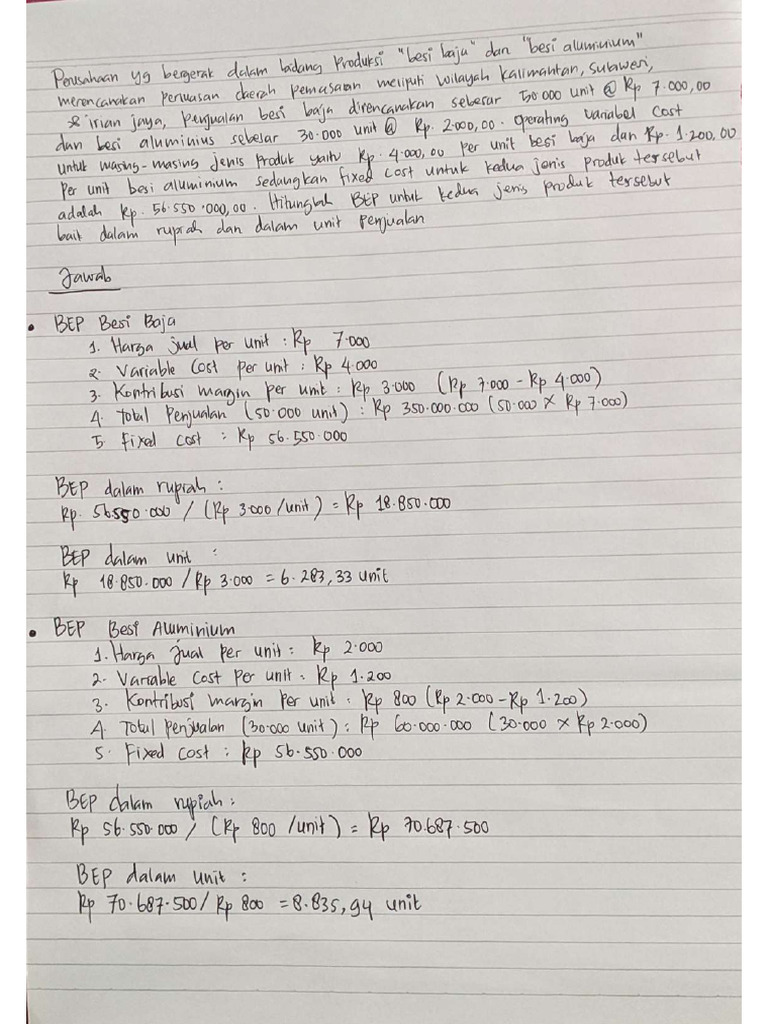 Perusahaan yg bergerak dalam bidang produksi "besi baja" dan "besi aluminium"
merencanakan perluasan daerah pemasaran meliputi wilayah kalimantan, sulawesi,
& irian jaya, penjualan besi baja direncanakan sebesar 50.000 unit @ Rp 7.000,00
dan besi aluminius sebesar 30.000 unit @ Rp. 2.000,00. Operating variabel cost
untuk masing-masing jenis produk yaitu Rp. 4.000,00 per unit besi baja dan Rp. 1.200,00
per unit besi aluminium sedangkan fixed cost untuk kedua jenis produk tersebut
adalah Rp. 56.550.000,00. Hitunglah BEP untuk kedua jenis produk tersebut
baik dalam rupiah dan dalam unit penjualan
Jawab
• BEP Besi Baja
1. Harga jual per unit : Rp 7.000
2. Variable Cost per unit : Rp 4.000
3. Kontribusi margin per unit : Rp 3.000 (Rp 7.000 - Rp 4.000)
4. Total Penjualan (50.000 unit) : Rp 350.000.000 (50.000 x Rp 7.000)
5. Fixed cost : Rp 56.550.000
BEP dalam rupiah :
Rp. 56550.000 / (Rp 3.000/unit) = Rp 18.850.000
BEP dalam unit :
Rp 18.850.000 / Rp 3.000 = 6.283,33 unit
• BEP Besi Aluminium
1. Harga Jual per unit : Rp 2.000
2. Variable Cost per unit : Rp 1.200
3. Kontribusi margin per unit : Rp 800 (Rp 2.000 - Rp 1.200)
4. Total penjualan (30.000 unit) : Rp 60.000.000 (30.000 x Rp 2.000)
5. Fixed cost : Rp 56.550.000
BEP dalam rupiah :
Rp 56.550.000 / (Rp 800 /unit) = Rp 70.687.500
BEP dalam unit :
Rp 70.687.500/ Rp 800 = 8.835,94 unit